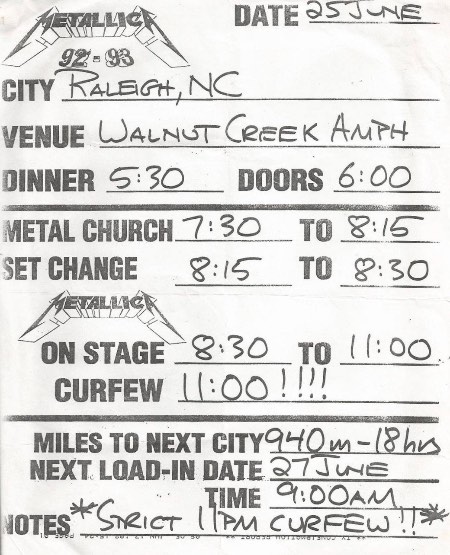 METALLICA DATE 25 JUNE
92-93
CITY RALEIGH, NC
VENUE WALNUT CREEK AMPH
DINNER 5:30 DOORS 6:00
METAL CHURCH 7:30 TO 8:15
SET CHANGE 8:15 TO 8:30
METALLICA
ON STAGE 8:30 TO 11:00
CURFEW 11:00!!!!
MILES TO NEXT CITY 940m-18hrs
NEXT LOAD-IN DATE 27 JUNE
TIME 9:00AM
NOTES *STRICT 11PM CURFEW!!*